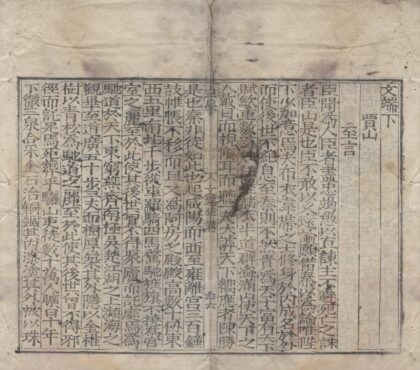 文端下
賈山
至言
臣聞爲人臣者盡忠竭愚以直諫主不避死亡之誅
者臣山是也臣不敢以久遠諭願借秦以爲諭唯陛
下少加意焉夫布衣韋帶之士修身於內成名於外
而使後世不絶息至秦則不然貴爲天子富有天下
賦斂重數百姓任罷赭衣半道群盜滿山使天下之
人戴目而視傾耳而聽一夫大謼天下嚮應者陳勝
是也秦非徒如此也起咸陽而西至雍離宮三百鍾
鼓帷帳不移而具又爲阿房之殿殿高數十仞東
西五里南北千步從車羅騎四馬騖馳旌旗不撓爲宮
室之麗至於此使其後世曾不得聚廬而託處焉爲
馳道於天下東窮燕齊南極吳楚江湖之上瀕海之
觀畢至道廣五十步三丈而樹厚築其外隱以金椎
樹以青松爲馳道之麗至於此使其後世曾不得邪
徑而託足焉死葬乎驪山吏徒數十萬人曠日十年
下徹三泉合采金石冶銅錮其內漆塗其外被以珠